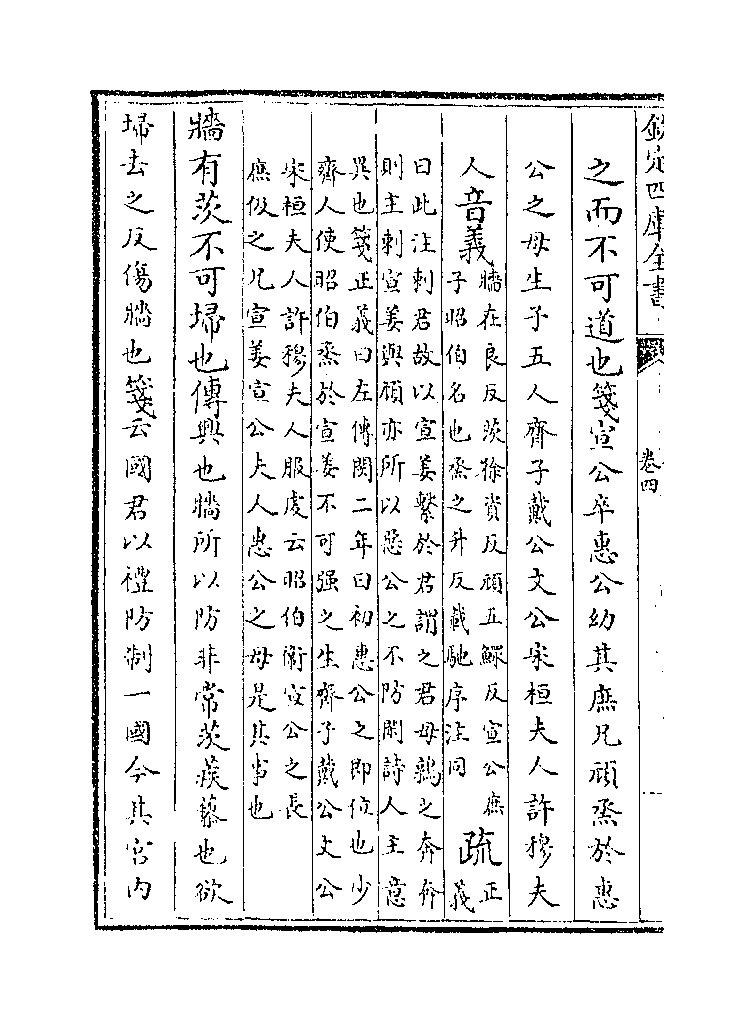 欽定四庫全書
卷四
之而不可道也箋宣公卒惠公幼其庶兄頑烝於惠
公之母生子五人齊子戴公文公宋桓夫人許穆夫
人音義牆在良反茨徐資反頑五鰥反宣公庶
子昭伯名也烝之升反載馳序注同疏正義
曰此注刺君故以宣姜繫於君謂之君母鶉之奔奔
則主刺宣姜與頑亦所以惡公之不防閑詩人主意
異也箋正義曰左傳閔二年曰初惠公之即位也少
齊人使昭伯烝於宣姜不可强之生齊子戴公文公
宋桓夫人許穆夫人服虔云昭伯衛宣公之長
庶伋之兄宣姜宣公夫人惠公之母是其事也
牆有茨不可埽也傳興也牆所以防非常茨蒺藜也欲
埽去之反傷牆也箋云國君以禮防制一國今其宫内